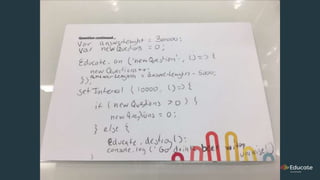 Question continued...
Var answerLenght = 30000;
Var newQuestions = 0;
Educate.on ('newQuestion', () => {
newQuestions++;
}); answerLenght = answerLenght - 5000;
setInterval (10000, () => {
if (newQuestions > 0) {
newQuestions = 0;
} else {
Educate.destroy();
console.log ('Go drink beer
Educate